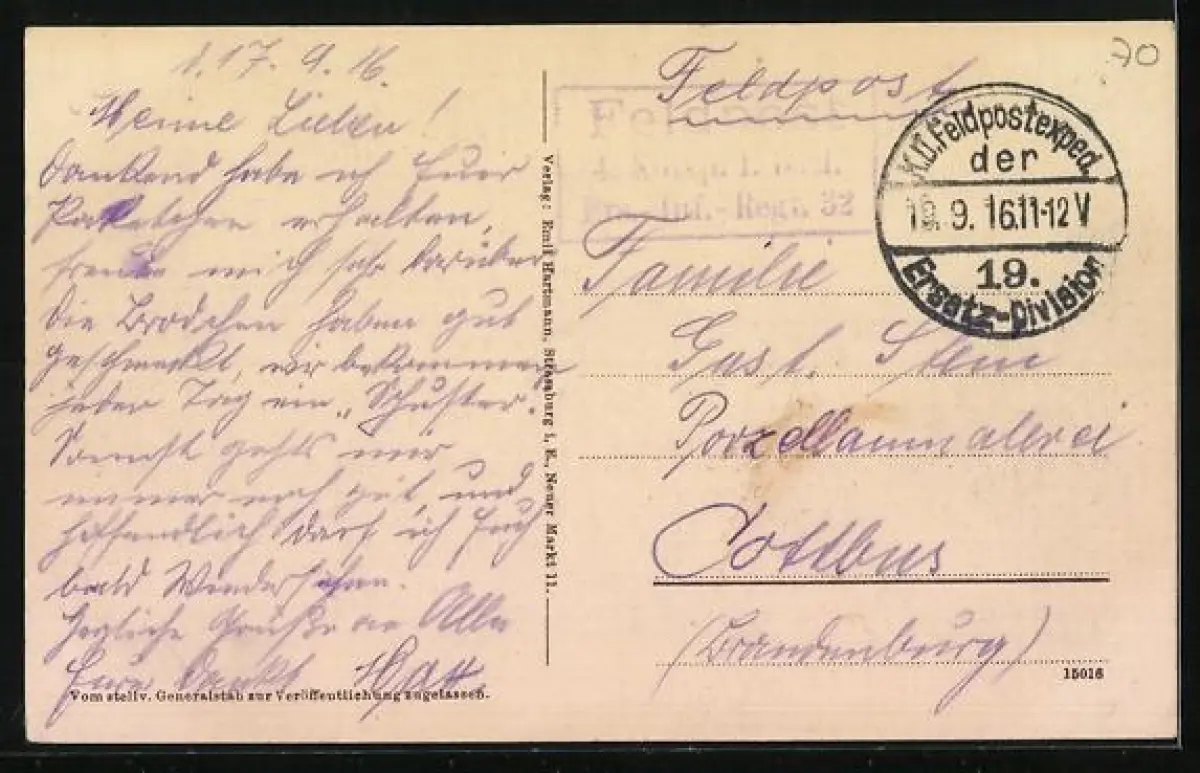 d. 17. 9. 16.
Meine Lieben!
Dankend habe ich Euer
Paketchen erhalten,
freute mich sehr darüber
Die Brödchen haben gut
geschmeckt, wir bekommen
jeder Tag ein „Schuster".
Sonnst gehts mir
immer noch gut, und
hoffendlich darf ich Euch
bald Wiedersehen.
Herzliche Grüße an Alle
Eure
Vom stellv. Generalstab zur Veröffentlichung zugelassen.
Verlag: Emil Hartmann, Strassburg i. E., Neuer Markt 11.
Feldpost
Regt. 32
K.D. Feldpostexped.
der
19. 9. 16. 11-12 V
19.
Ersatz-Division
70
Familie
Gust. Stein
Porzellanmalerei
Cottbus
(Brandenburg)
15016